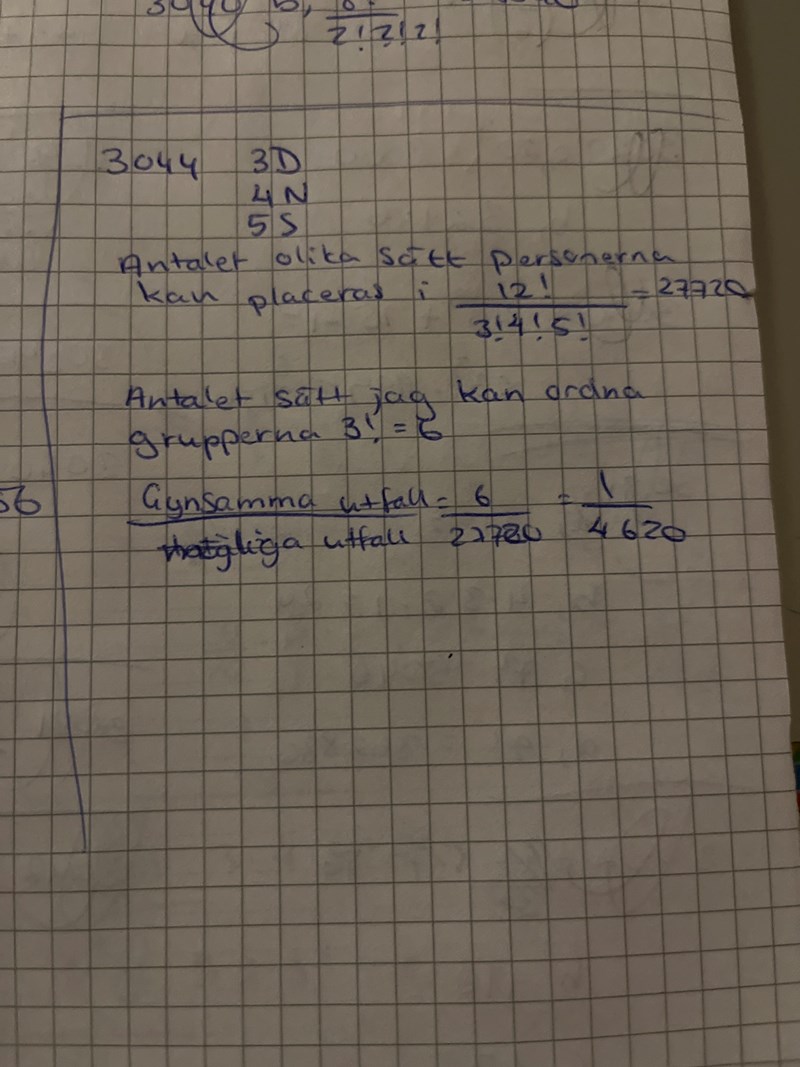 2!2!2!
3044 3D
4N
5S
Antalet olika sätt personerna
kan placeras i 12!/3!4!5! = 27720
Antalet sätt jag kan ordna
grupperna 3! = 6
Gynsamma utfall = 6/27720 = 1/4620
utfall
56